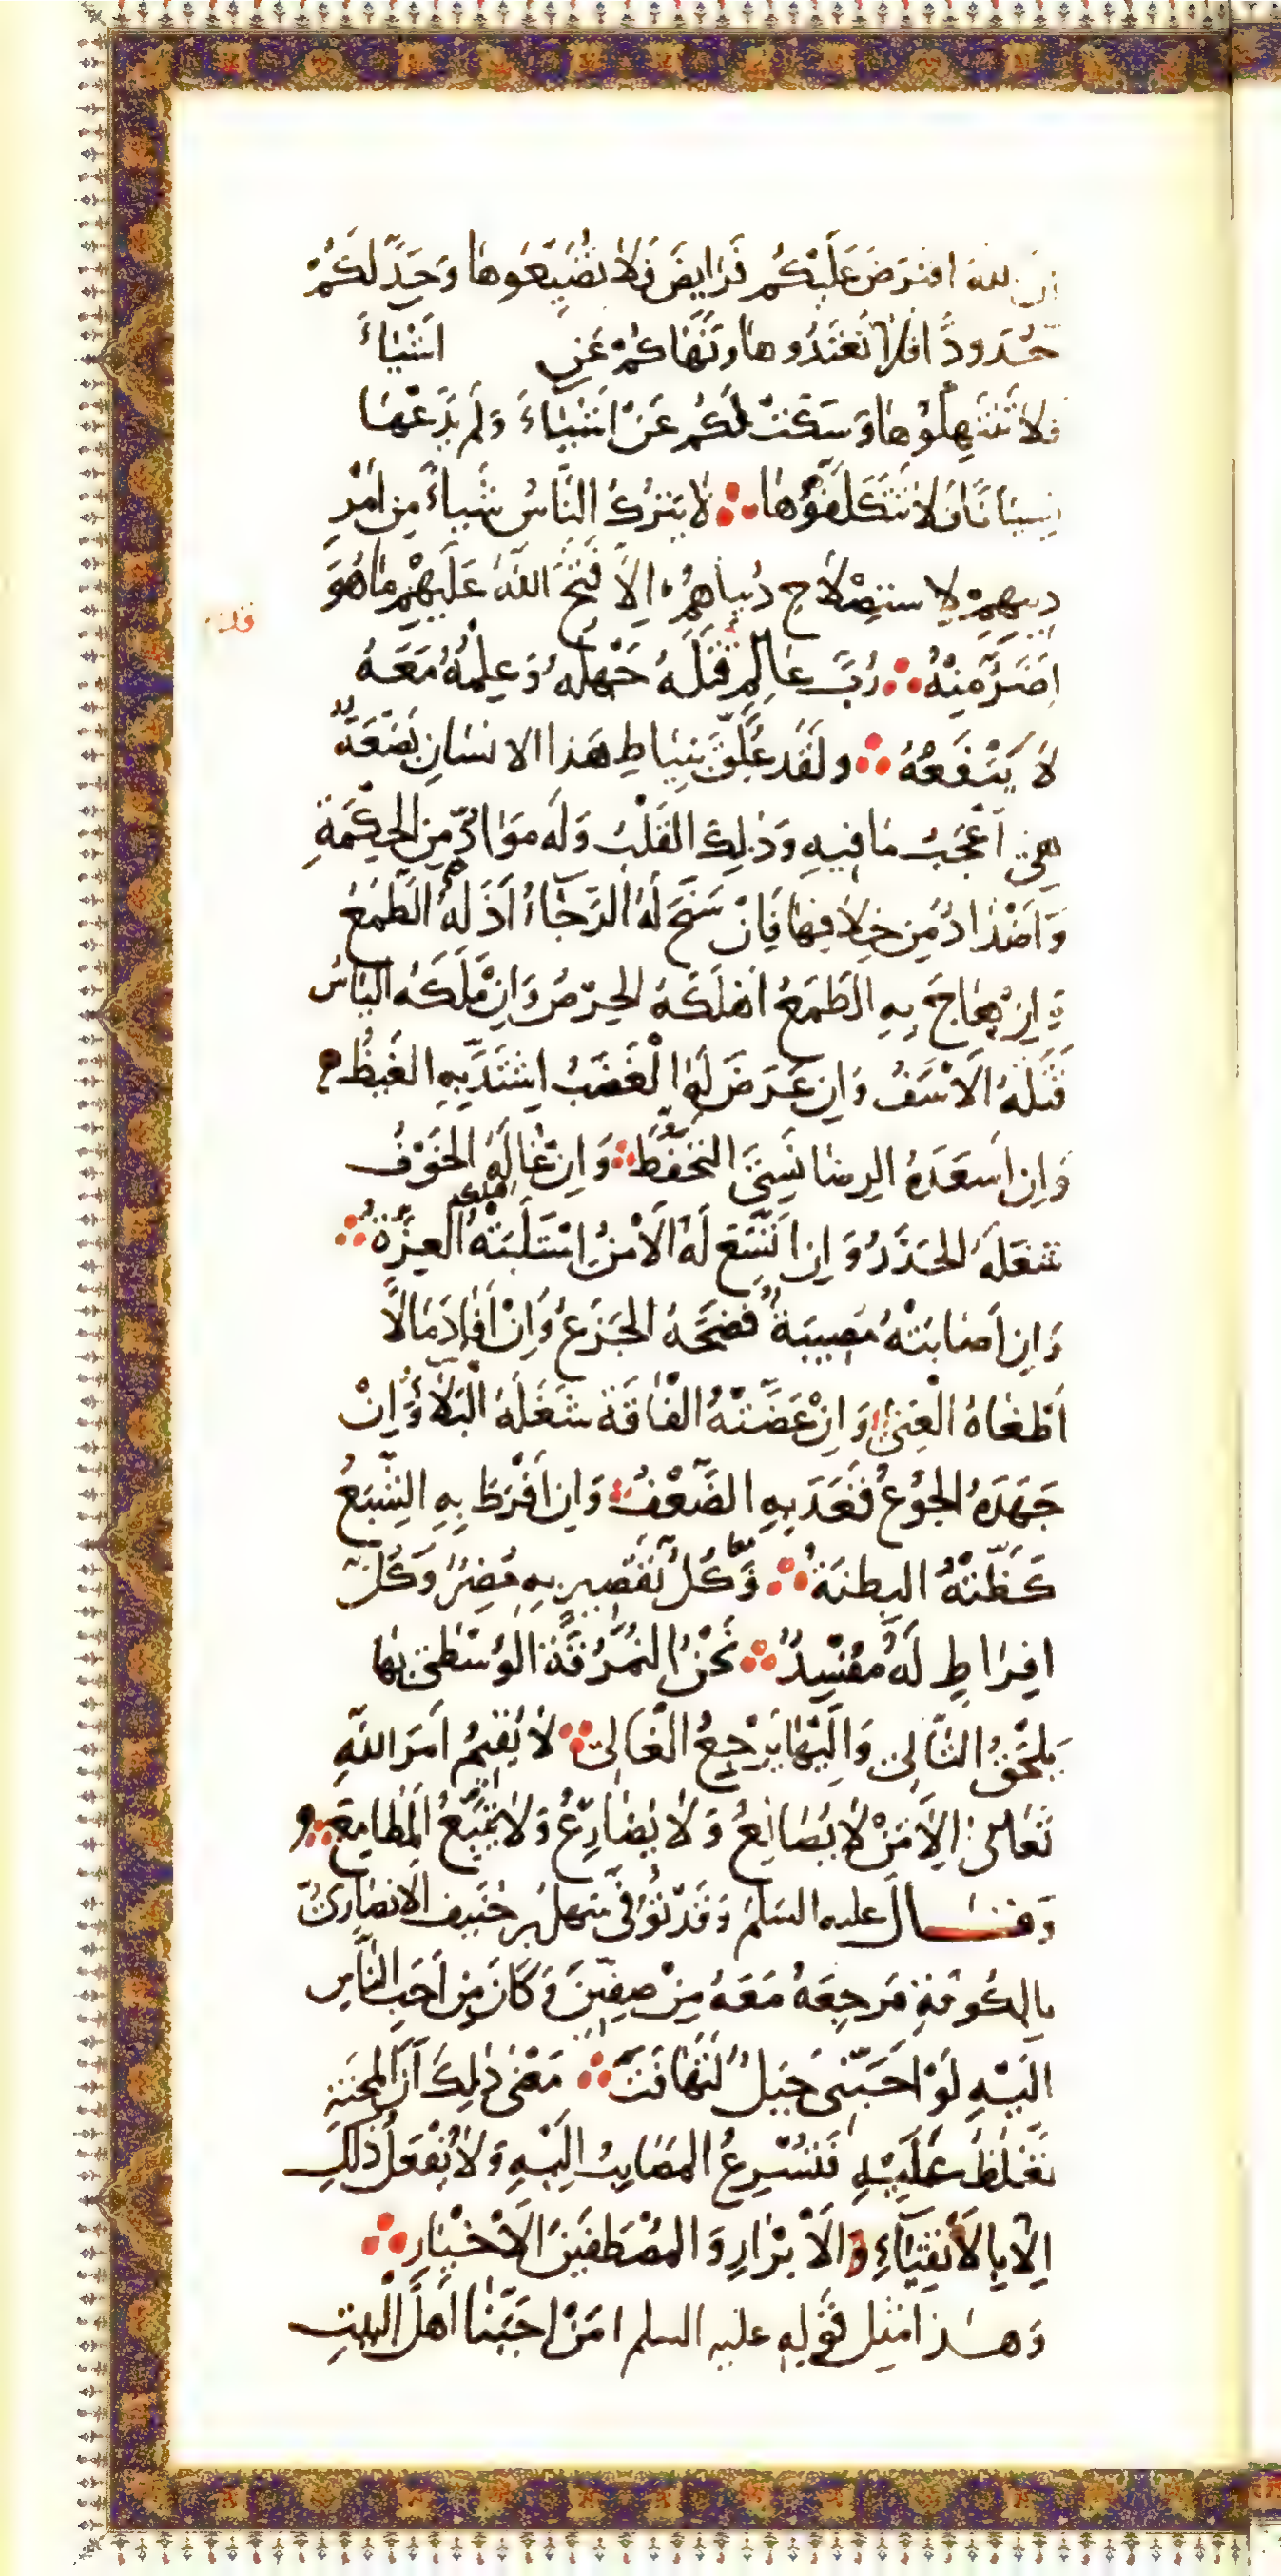 إن الله افترض عليكم فرايض فلا تضيعوها وحد لكم
حدودا فلا تعتدوها ونهاكم عن اشياء
فلا تنتهكوها وسكت لكم عن اشياء ولم يدعها
نسيانا فلا تتكلفوها لا يترك الناس شيئا من امر
دينهم لاستصلاح دنياهم الا فتح الله عليهم ما هو
اضر منه رب عالم قتله جهله وعلمه معه
لا ينفعه ولقد علق بنياط هذا الانسان بضعة
هى اعجب ما فيه وذلك القلب وله مواد من الحكمة
واضداد من خلافها فان سنح له الرجاء اذله الطمع
وان هاج به الطمع اهلكه الحرص وان ملكه الياس
قتله الاسف وان عرض له الغضب اشتد به الغيظ
وان اسعده الرضا نسى التحفظ وان غاله الخوف
شغله الحذر وان اتسع له الامن استلبته العزة
وان اصابته مصيبة فضحه الجزع وان افاد مالا
اطغاه الغنى وان عضته الفاقة شغله البلاء وان
جهده الجوع قعد به الضعف وان افرط به الشبع
كظته البطنة وكل تقصير به مضر وكل
افراط له مفسد نحن النمرقة الوسطى بها
يلحق التالى واليها يرجع الغالى لا يقيم امر الله
تعالى الا من لا يصانع ولا يضارع ولا يتبع المطامع
وقال عليه السلم وقد توفى سهل بن حنيف الانصارى
بالكوفة مرجعه معه من صفين وكان من احب الناس
اليه لو احبنى جبل لتهافت معنى ذلك ان المحنة
تغلظ عليه فتسرع المصايب اليه ولا يفعل ذلك
الا بالاتقياء والابرار والمصطفين الاخيار
وهذا مثل قوله عليه السلم من احبنا اهل البيت